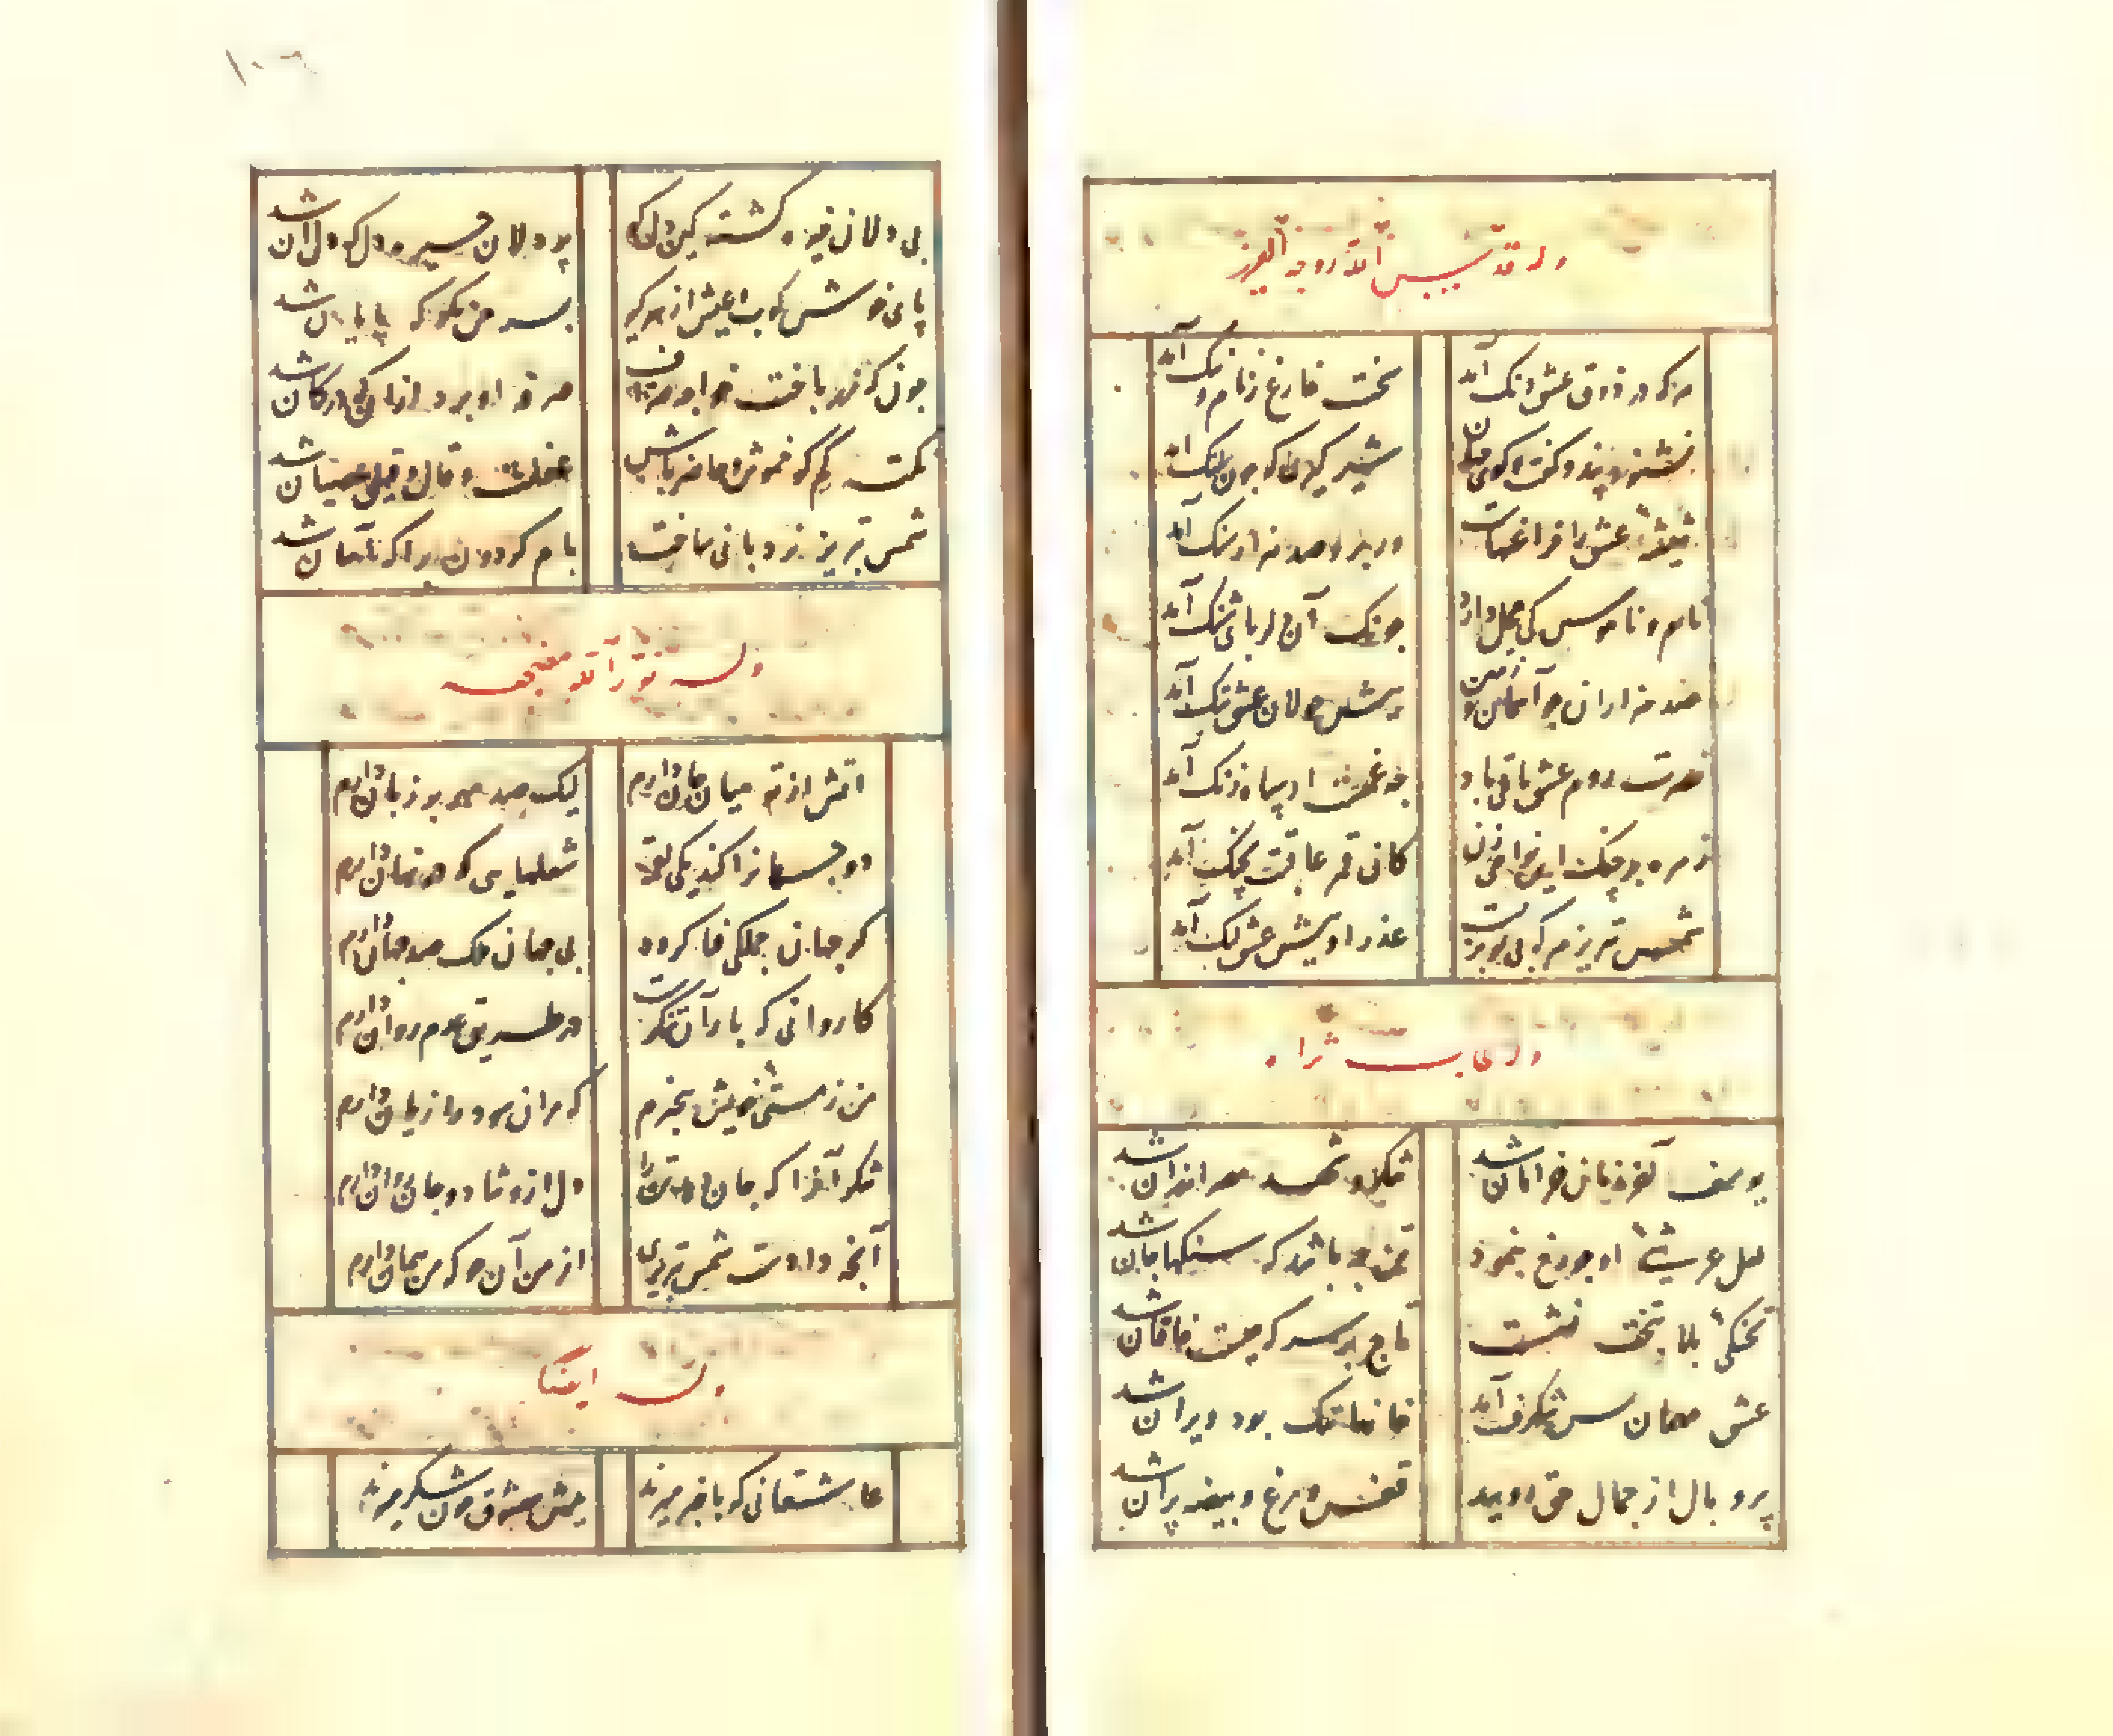 وله قدس الله روحه العزیز
هرکه در ذوق عشق دنک آمد
سخت فارغ ز نام و ننک آمد
نشنود پند و کفت و کوی جهان
شیر کیری که چون پلنک آمد
شیشه عشق را فراغتهاست
ور برو صد هزار سنک آمد
نام و ناموس کی خجل دارد
چونک آن دلربای شنک آمد
صد هزاران چو آسمان و زمین
پیش جولان عشق تنک آمد
قصرت روم عشق باقی باد
زهره بر چنک این نوا می زن
کان قمر عاقبت بچنک آمد
شمس تبریز هرکه بی تو بزیست
عذر او پیش عشق لنک آمد
وله طاب ثراه
یوسف آخر زمان خرامان شد
شکر و شهد مصر ارزان شد
لعل عرشی او چو رخ بنمود
تن چه باشد که سنکها جان شد
تخنکی بلا بتخت نشست
تاج بر سر که چیست خاقان شد
عشق مهمان بس شکرف آمد
خانها تنک بود ویران شد
پر و بال از جمال حق رویید
قفس و مرغ و بیضه پران شد
۱۰۶
بی دلان خیره کشته کین دل کو
پر دلان خیره دل که دل آن شد
پای خوش کوب عیش از سر کیر
بسر من مکو که پایان شد
چون که زر باختت خواجه صراف
صرفه او برد زانک در کان شد
نکته کم کو خموش و حاضر باش
غفلت و قال و قیل عصیان شد
شمس تبریز نردبانی ساخت
بام کردون برآ که آسان شد
وله نور الله مضجعه
آتش از تو میان جان دارم
لیک صد مهر بر زبان دارم
دو جهانرا کند یکی لقمه
شعلهایی که در نهان دارم
کر جهان جملکی فنا کردد
بی جهان ملک صد جهان دارم
کاروانی که بار آن شکرست
در طریق عدم روان دارم
من ز مستی خویش بیخبرم
که مرا سود یا زیان دارم
شکر آنرا که جان دادت را
دل ازو شاد و جان روان دارم
آنچه دادت شمس تبریزی
از من آن جو که من همان دارم
وله ایضا
عاشقانی که باخبر میرند
پیش معشوق چون شکر میرند